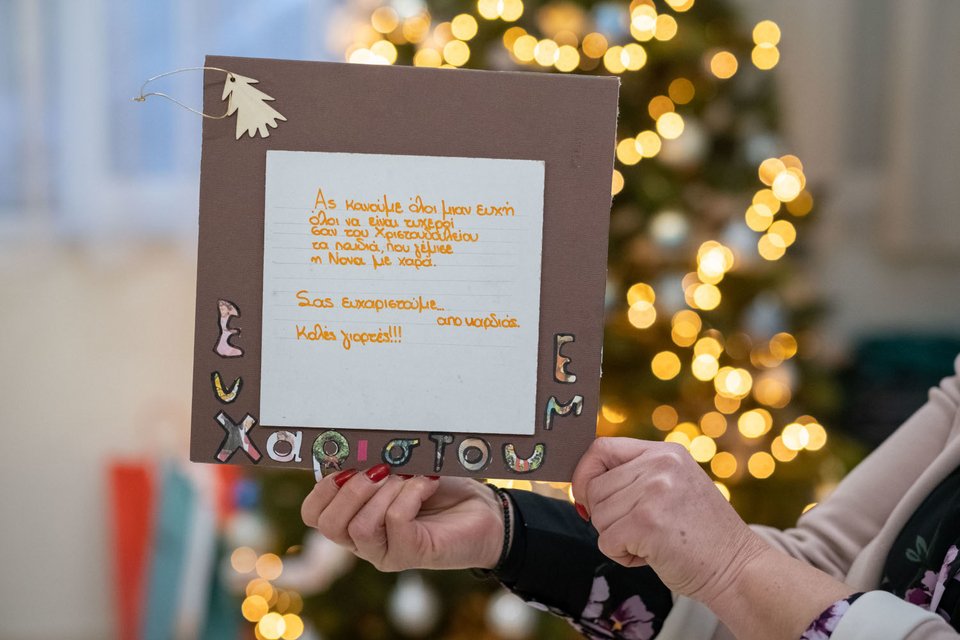 Ας κανούμε όλοι μιαν ευχή
όλοι να είναι τυχεροί
σαν του Χριστουδουλείου
τα παιδιά, που γέμισε
η Νονα με χαρά.
Σας ευχαριστούμε...
απο καρδιάς.
Καλές γιορτές!!!
Ευχαριστουμε